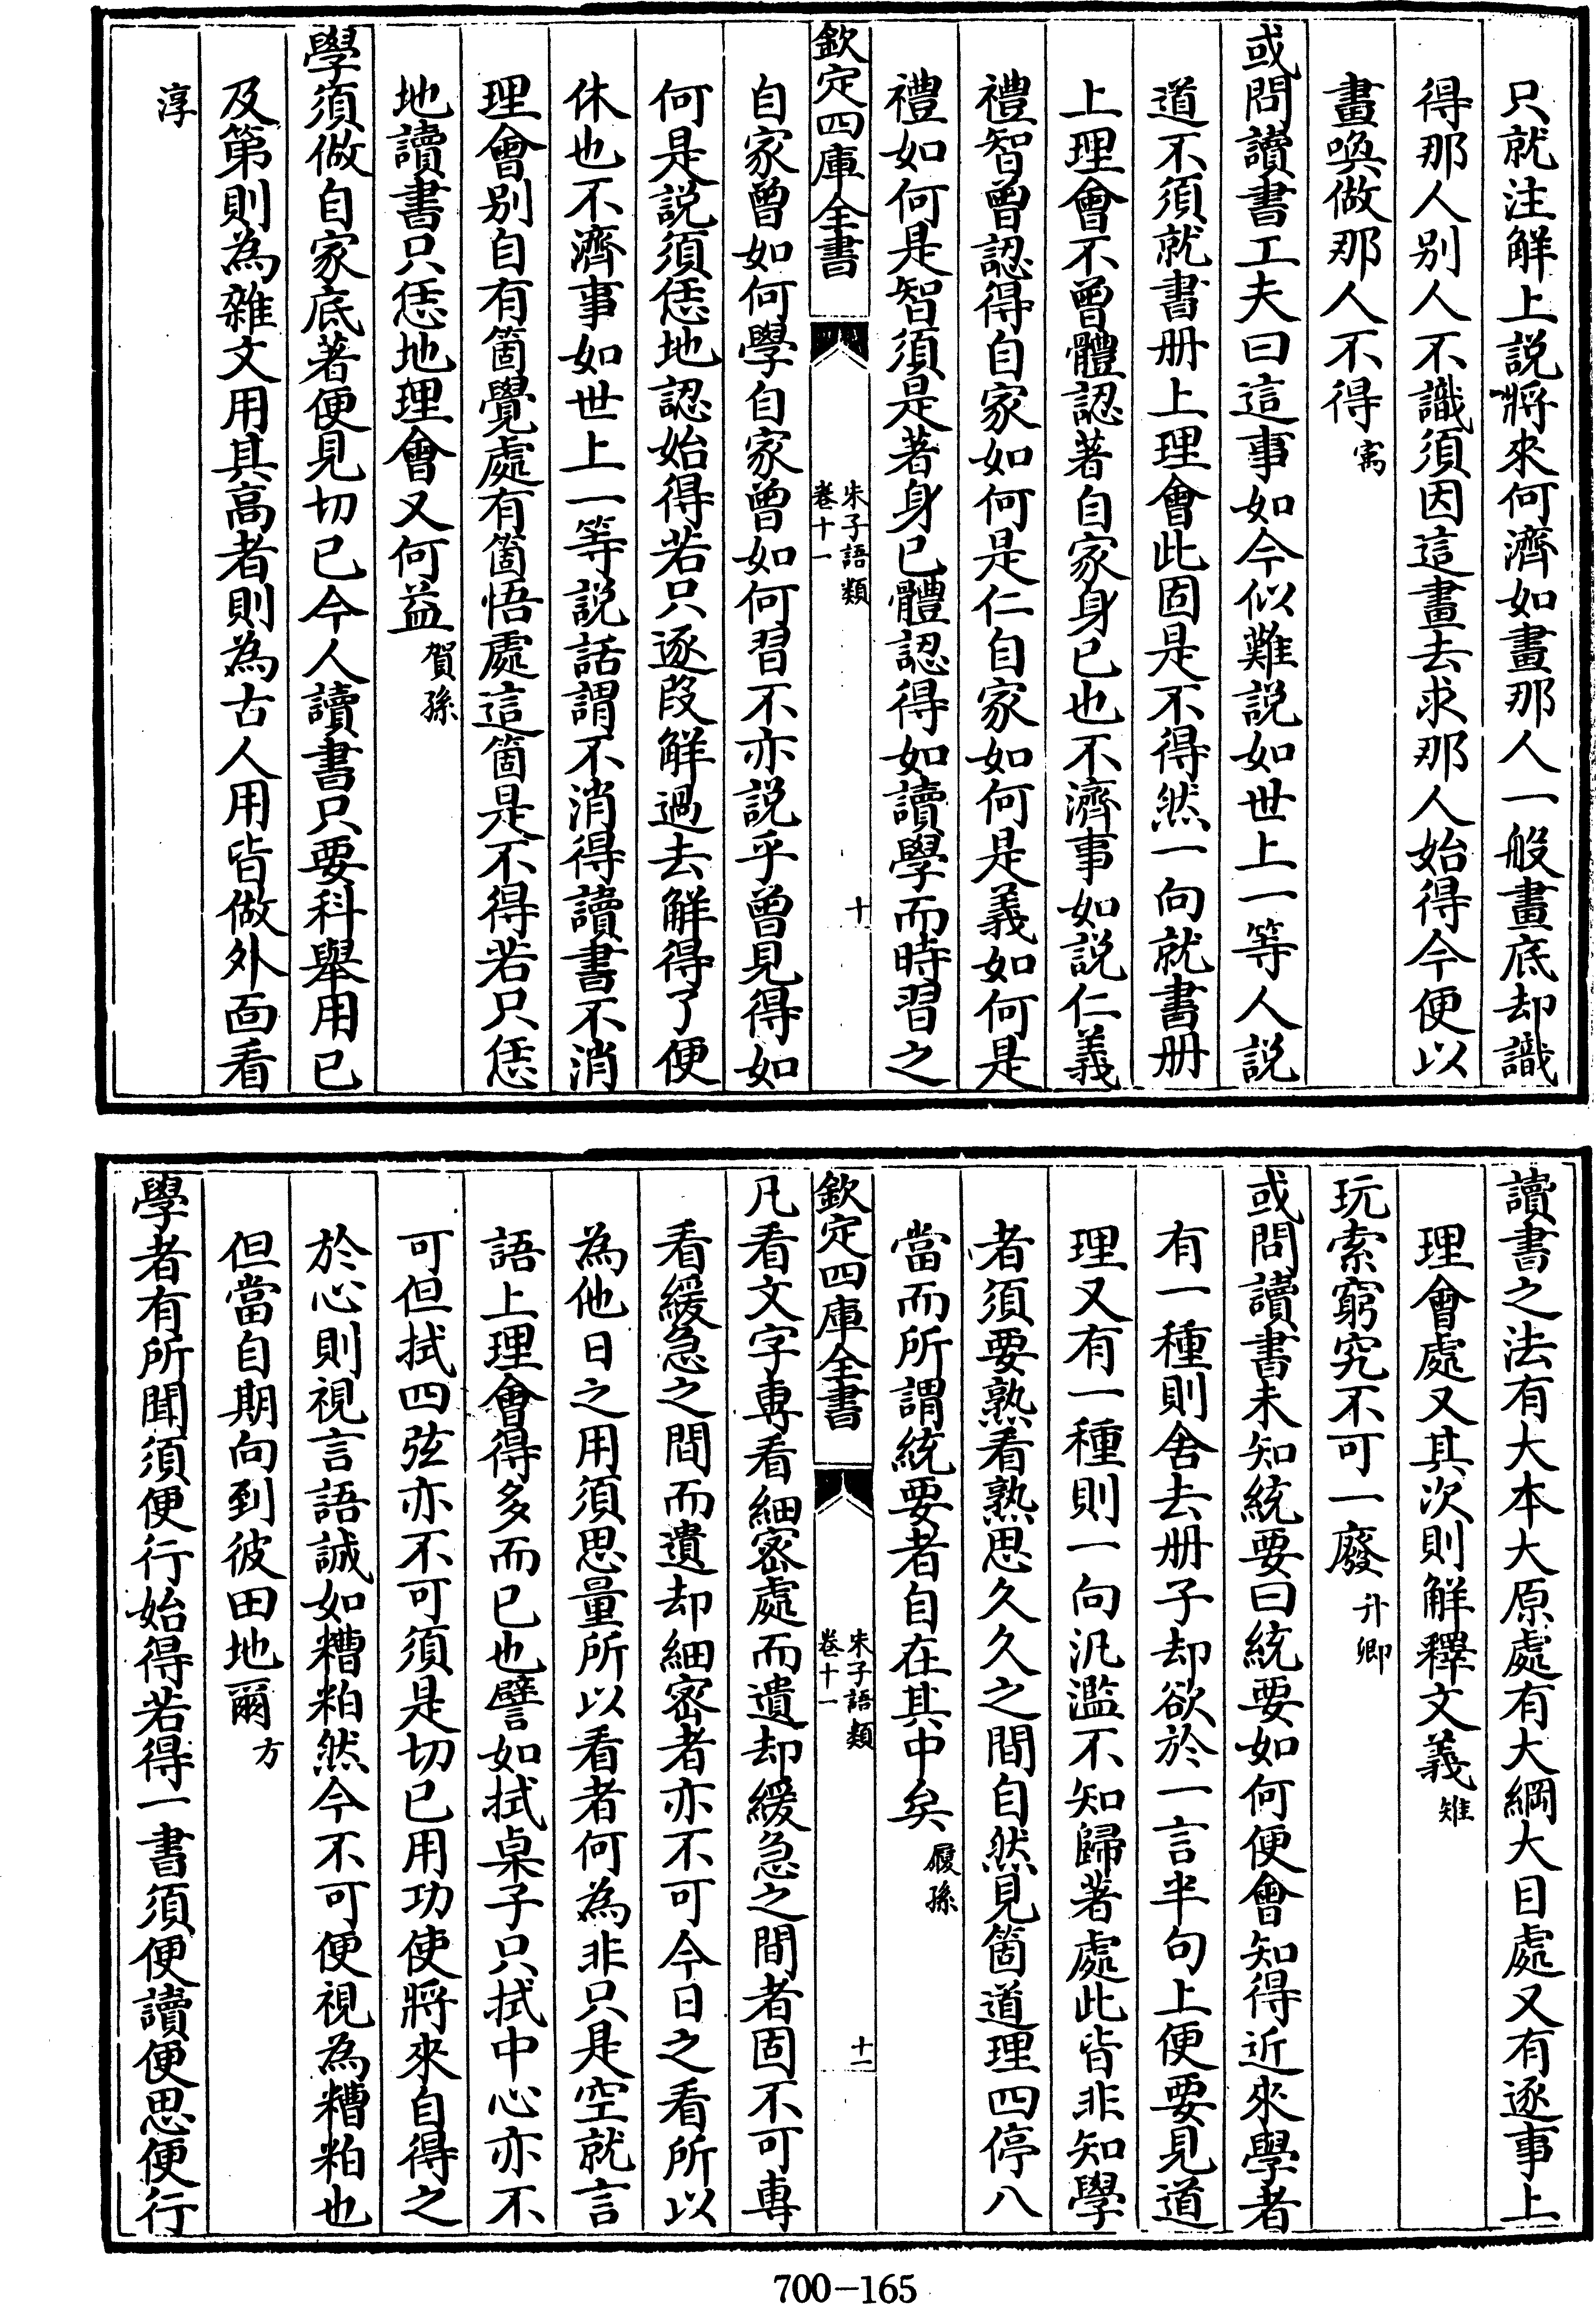 只就注解上説將來何濟如畫那人一般畫底却識
得那人别人不識須因這畫去求那人始得今便以
畫喚做那人不得㝢
或問讀書工夫曰這事如今似難説如世上一等人説
道不須就書册上理會此固是不得然一向就書册
上理會不曾體認著自家身已也不濟事如説仁義
禮智曾認得自家如何是仁自家如何是義如何是
禮如何是智須是著身已體認得如讀學而時習之
欽定四庫全書
朱子語類
卷十一
十
自家曾如何學自家曾如何習不亦説乎曾見得如
何是説須恁地認始得若只逐段解過去解得了便
休也不濟事如世上一等説話謂不消得讀書不消
理會别自有箇覺處有箇悟處這箇是不得若只恁
地讀書只恁地理會又何益賀孫
學須做自家底著便見切已今人讀書只要科舉用已
及第則為雜文用其高者則為古人用皆做外面看
淳
讀書之法有大本大原處有大綱大目處又有逐事上
理會處又其次則解釋文義雉
玩索窮究不可一廢升卿
或問讀書未知統要曰統要如何便會知得近來學者
有一種則舍去册子却欲於一言半句上便要見道
理又有一種則一向汎濫不知歸著處此皆非知學
者須要熟看熟思久久之間自然見箇道理四停八
當而所謂統要者自在其中矣履孫
欽定四庫全書
朱子語類
卷十一
十一
凡看文字專看細密處而遺却緩急之間者固不可專
看緩急之間而遺却細密者亦不可今日之看所以
為他日之用須思量所以看者何為非只是空就言
語上理會得多而已也譬如拭桌子只拭中心亦不
可但拭四弦亦不可須是切已用功使將來自得之
於心則視言語誠如糟粕然今不可便視為糟粕也
但當自期向到彼田地爾方
學者有所聞須便行始得若得一書須便讀便思便行
700-165